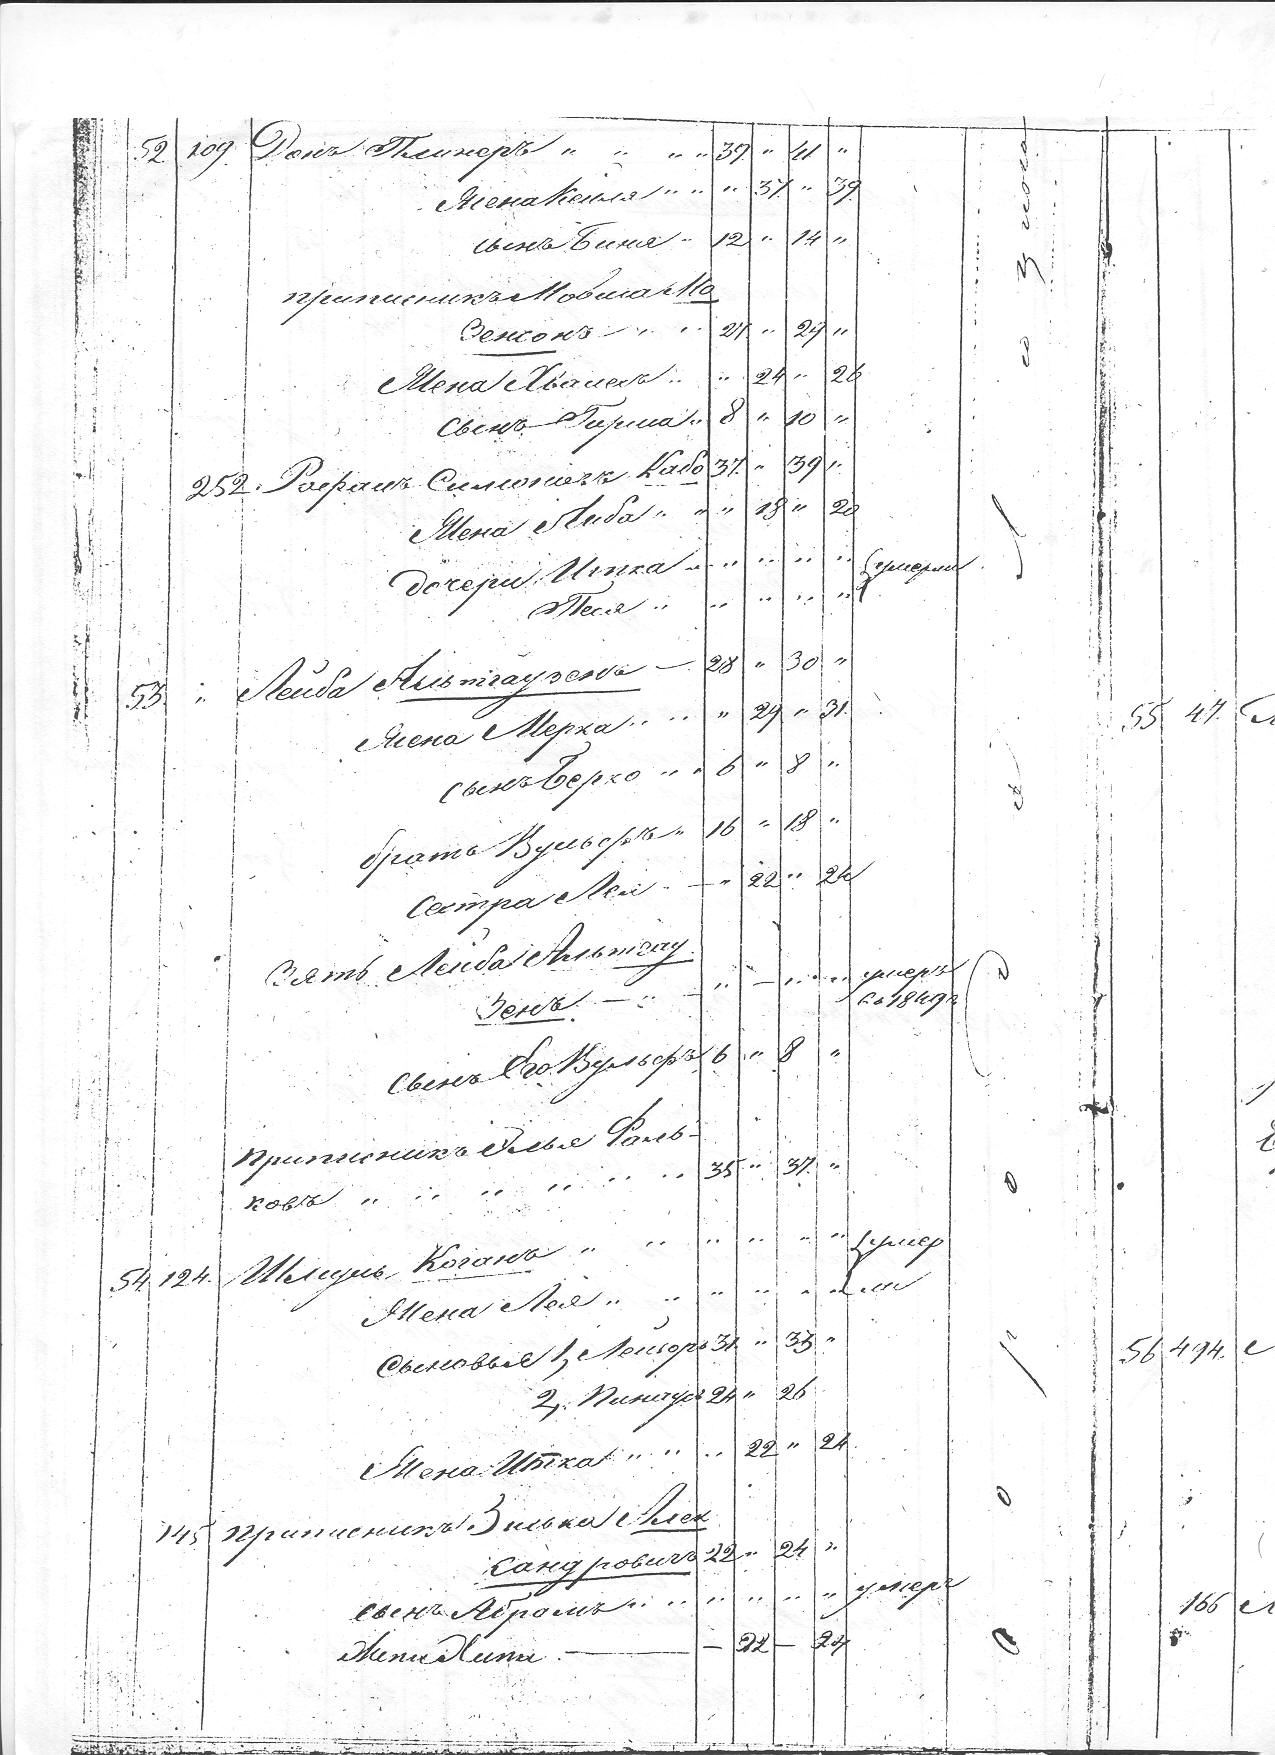 52 109. Донъ Плинеръ " " " " 39 " 41 "
Жена Кейля " " " " 37 " 39
сынъ Биня " 12 " 14 "
приписникъ Мовша Мо
Зенсонъ — " " 27 " 29 "
Жена Хьаша " " 24 " 26
сынъ Гирша " 8 " 10 "
252. Рафаилъ Симоновъ Кабо 37 " 39 "
Жена Либа " " " 18 " 20
дочери Итка " " " " " умерли
Песя " " " " "
53 " Лейба Альтгаузенъ — 28 " 30 "
Жена Мерка " " " 29 " 31
сынъ Берко " " 6 " 8 "
братъ Вульфъ " 16 " 18 "
сестра Лея " — " 22 " 24
Зять Лейба Альтгау
зенъ — " — " — " " " умеръ
въ 1849 г
сынъ Его Вульфъ 6 " 8 "
приписникъ Элья Фаль-
ковъ " " " " " " 35 " 37 "
54 124. Шмуль Коганъ " " " " " " умер
Жена Лея " " " " " " ли
сыновья 1, Лейзоръ 31 " 33 "
2, Пинхусъ 24 " 26
Жена Итка " " " 22 " 24
145 приписникъ Зилька Алек
сандровичъ 22 " 24 "
сынъ Абрамъ " " " " " " умеръ
— 22 — 24
55 47.
56 494.
166